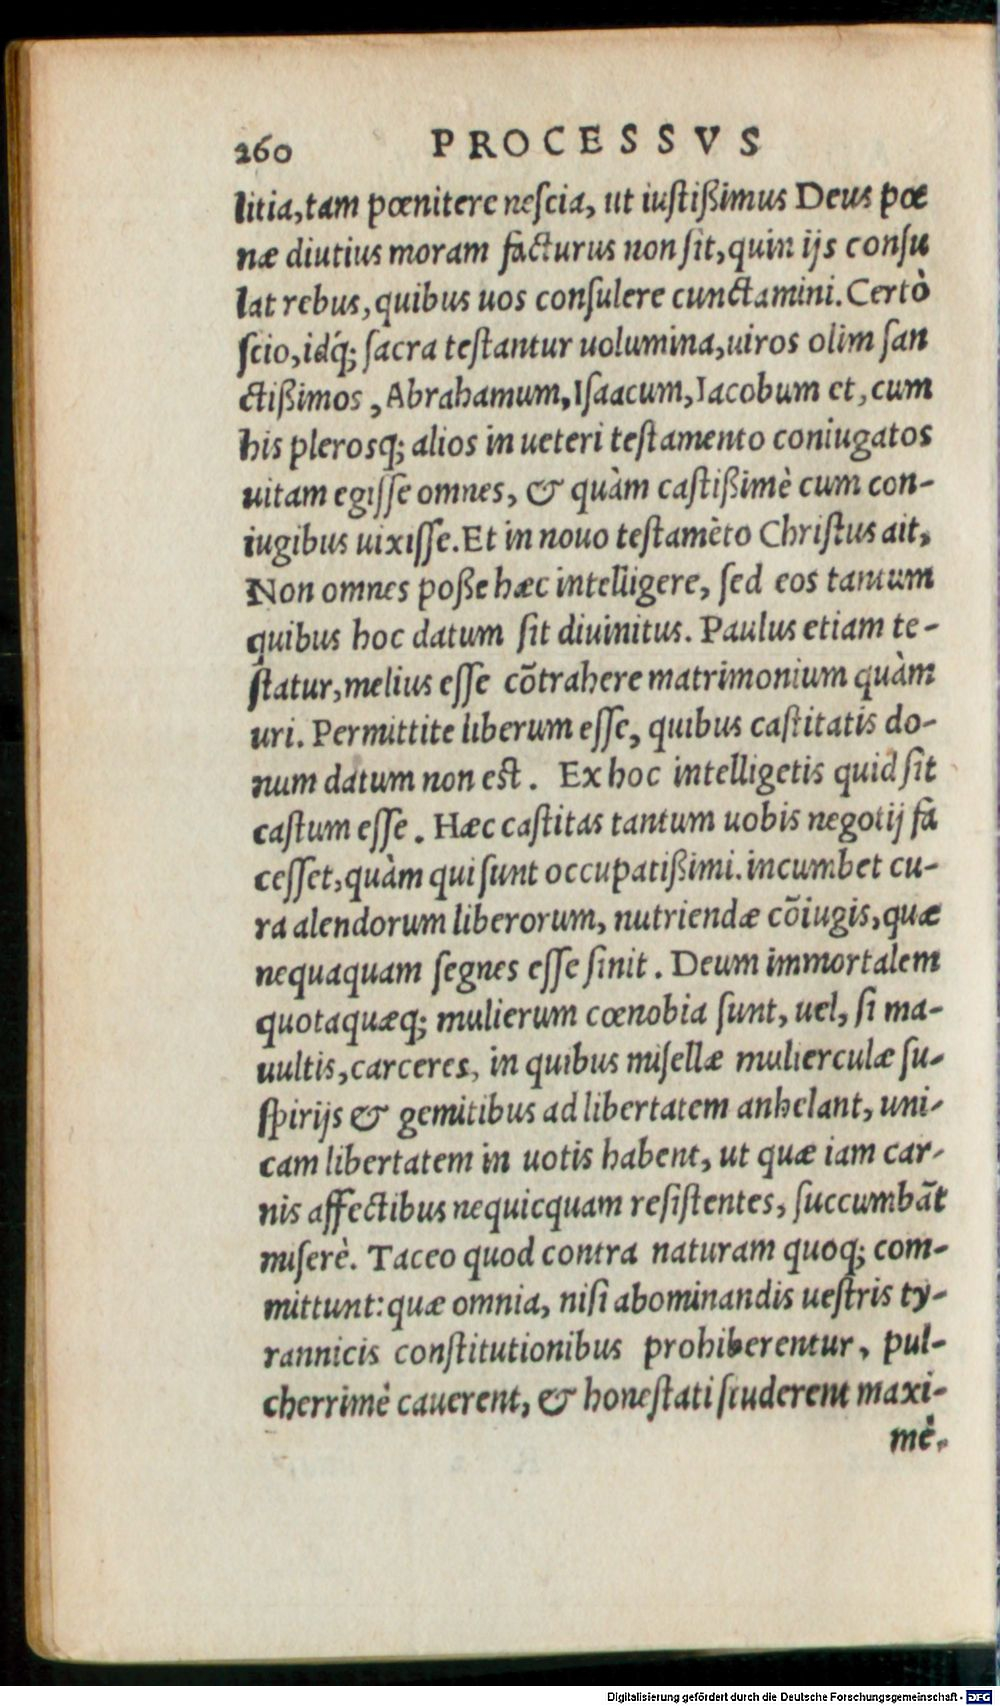 260 PROCESSVS
litia, tam pœnitere neſcia, ut iuſtißimus Deus pœ
næ diutius moram facturus non ſit, quin ijs conſu
lat rebus, quibus uos conſulere cunctamini. Certò
ſcio, idq́; ſacra teſtantur uolumina, uiros olim ſan
ctißimos, Abrahamum, Iſaacum, Iacobum et, cum
his plerosq; alios in ueteri teſtamento coniugatos
uitam egiſſe omnes, & quàm caſtißimè cum con-
iugibus uixiſſe. Et in nouo teſtamẽto Chriſtus ait,
Non omnes poße hæc intelligere, ſed eos tantum
quibus hoc datum ſit diuinitus. Paulus etiam te-
ſtatur, melius eſſe cõtrahere matrimonium quàm
uri. Permittite liberum eſſe, quibus caſtitatis do-
num datum non est. Ex hoc intelligetis quid ſit
caſtum eſſe. Hæc caſtitas tantum uobis negotij fa
ceſſet, quàm qui ſunt occupatißimi. incumbet cu-
ra alendorum liberorum, nutriendæ cõiugis, quæ
nequaquam ſegnes eſſe ſinit. Deum immortalem
quotaquæq; mulierum cœnobia ſunt, uel, ſi ma-
uultis, carceres, in quibus miſellæ mulierculæ ſu-
ſpirijs & gemitibus ad libertatem anhelant, uni-
cam libertatem in uotis habent, ut quæ iam car-
nis affectibus nequicquam reſiſtentes, ſuccumbãt
miſerè. Taceo quod contra naturam quoq; com-
mittunt: quæ omnia, niſi abominandis ueſtris ty-
rannicis conſtitutionibus prohiberentur, pul-
cherrimè cauerent, & honeſtati ſtuderent maxi-
mè.
Digitalisierung gefördert durch die Deutsche Forschungsgemeinschaft - DFG